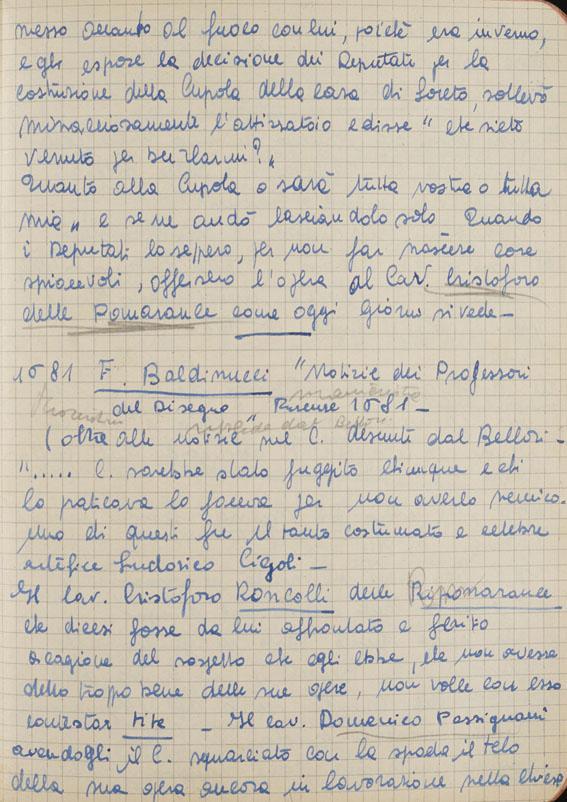 messo accanto al fuoco con lui, poichè era inverno,
e gli espose la decisione dei Deputati per la
costruzione della Cupola della casa di Loreto, sollevò
minacciosamente l'attizzatoio e disse " che siete
venuto per burlarmi? "
Quanto alla Cupola o sarà tutta vostra o tutta
mia " e se ne andò lasciandolo solo Quando
i Deputati lo seppero, per non far nascere cose
spiacevoli, offersero l'opera al Cav. Cristoforo
delle Pomarance come oggi giorno si vede —
1681 F. Baldinucci "Notizie dei Professori
del Disegno" Firenze 1681 —
(oltre alle notizie sul C. desunte dal Bellori —
"..... C. sarebbe stato fuggito chiunque e chi
lo praticava lo faceva per non averlo nemico.
Uno di questi fu il tanto costumato e celebre
artefice Ludovico Cigoli —
Il cav. Cristoforo Roncalli delle Ripomarance
che dicesi fosse da lui affrontato e ferito
a cagione del sospetto che egli ebbe, che non avesse
detto troppo bene delle sue opere, non volle con esso
contestar lite — Il cav. Domenico Passignani
avendogli il C. squarciato con la spada il telo
della sua opera ancora in lavorazione nella chiesa